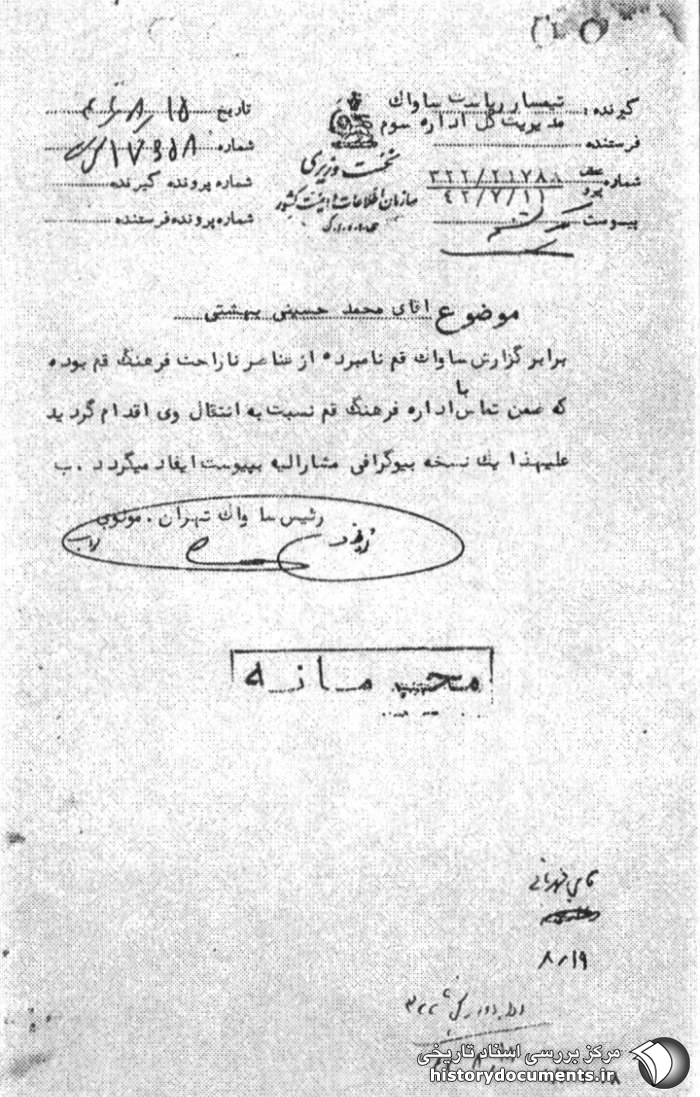 گیرنده : تیمسار ریاست ساواک
مدیریت کل اداره سوم
فرستنده
شماره عطف ۳۲۲/۲۱۷۸۸
پیرو ۴۲/۷/۱۱
پیوست
نخست وزیری
سازمان اطلاعات و امنیت کشور
س.ا.و.ا.ک
تاریخ ۱۵/۸/
شماره
شماره پرونده گیرنده
شماره پرونده فرستنده
موضوع آقای محمد حسینی بهشتی
برابر گزارش ساواک قم نامبرده از عناصر ناراحت فرهنگ قم بوده
که ضمن تماس با اداره فرهنگ قم نسبت به انتقال وی اقدام گردید
علیهذا یک نسخه بیوگرافی مشارالیه بپیوست ایفاد میگردد . ب
رئیس ساواک تهران . مولوی
محرمانه
آقای
۸/۱۹
مرکز بررسی اسناد تاریخی
historydocuments.ir